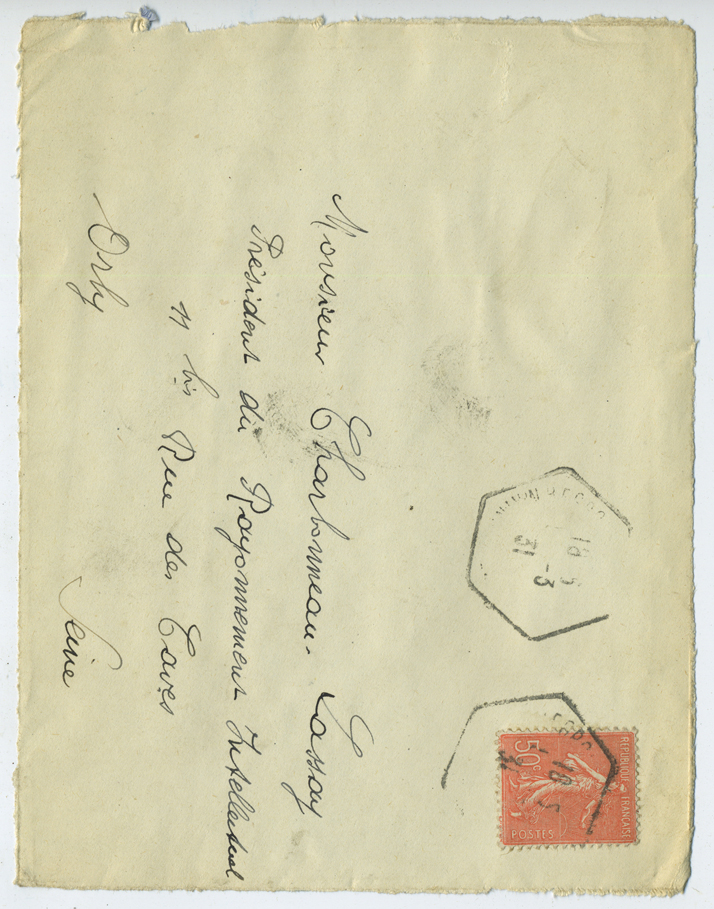 Monsieur Charbonneau-Lassay
Président du Rayonnement Intellectuel
11 bis Rue des Caves
Orly Seine
18
3
31
REPUBLIQUE FRANÇAISE
50c
POSTES